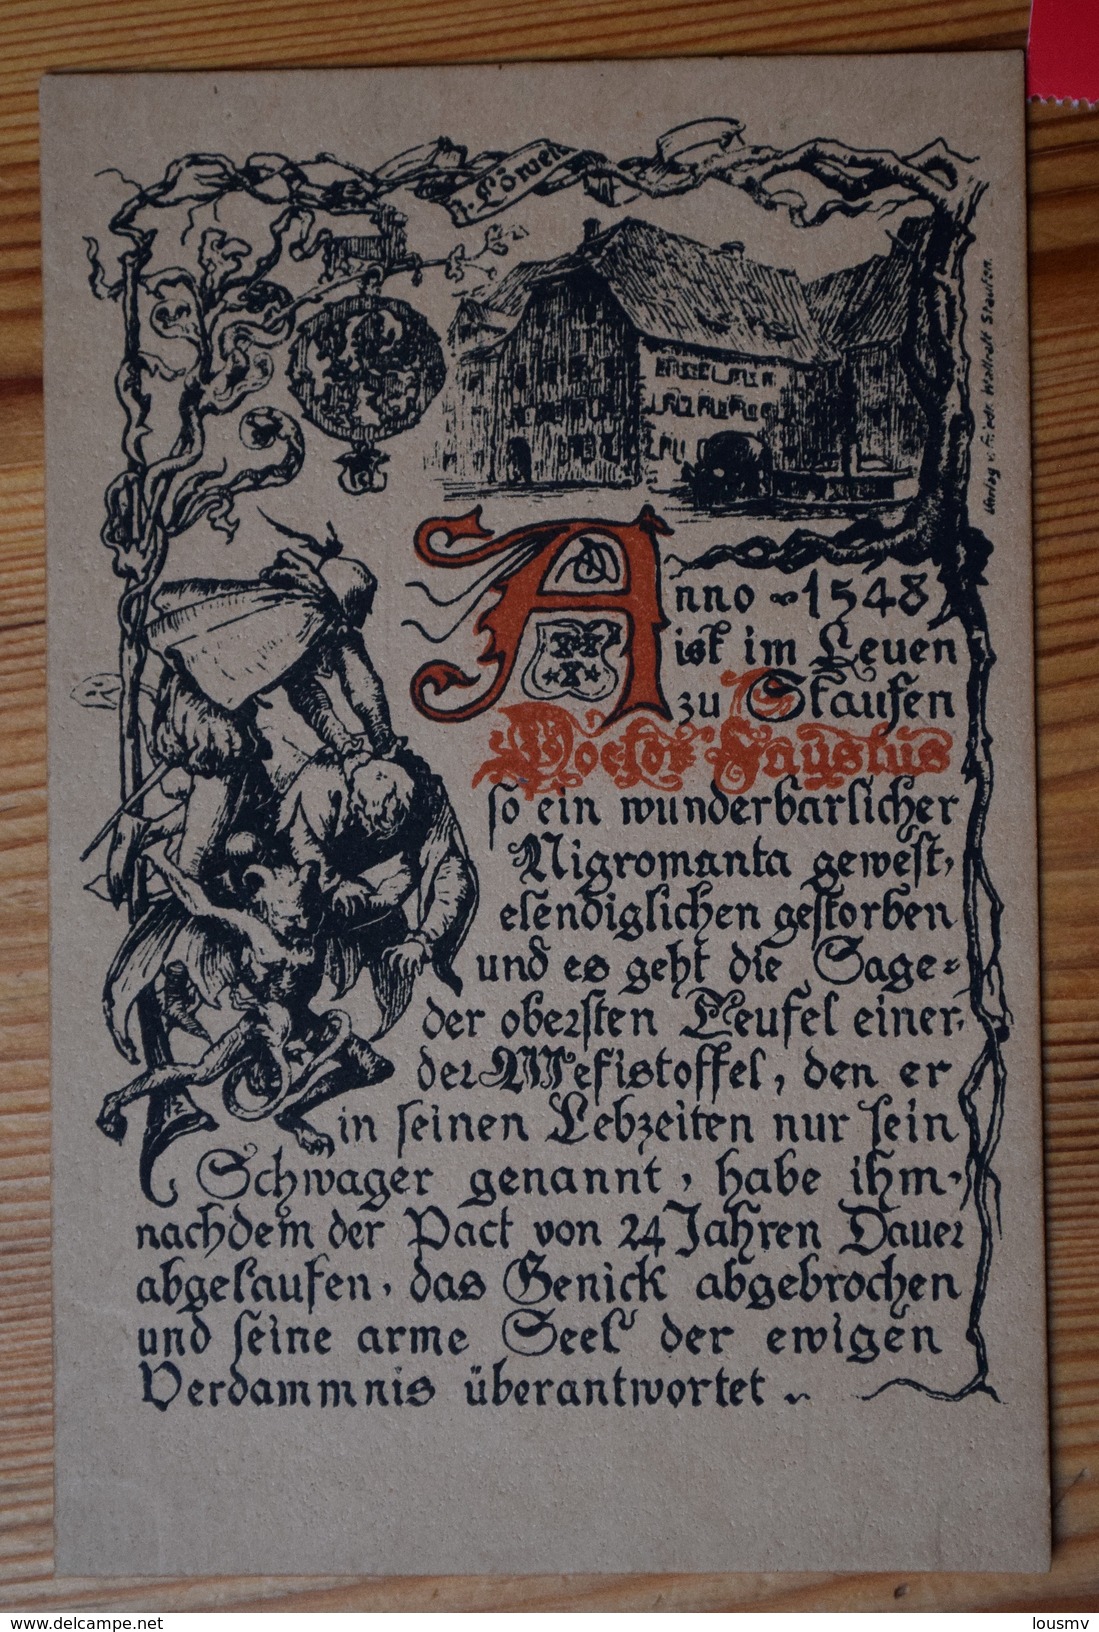 z. Löwen
Verlag v. Friedr. Wollralt Staufen.
Anno 1548
ist im Leuen
zu Staufen
Doctor Faustus
so ein wunderbarlicher
Nigromanta gewest,
elendiglichen gestorben
und es geht die Sage
der obersten Teufel einer,
der Mefistoffel, den er
in seinen Lebzeiten nur sein
Schwager genannt, habe ihm,
nachdem der Pact von 24 Jahren Dauer
abgelaufen, das Genick abgebrochen
und seine arme Seel der ewigen
Verdammnis überantwortet
www.delcampe.net
lousmv